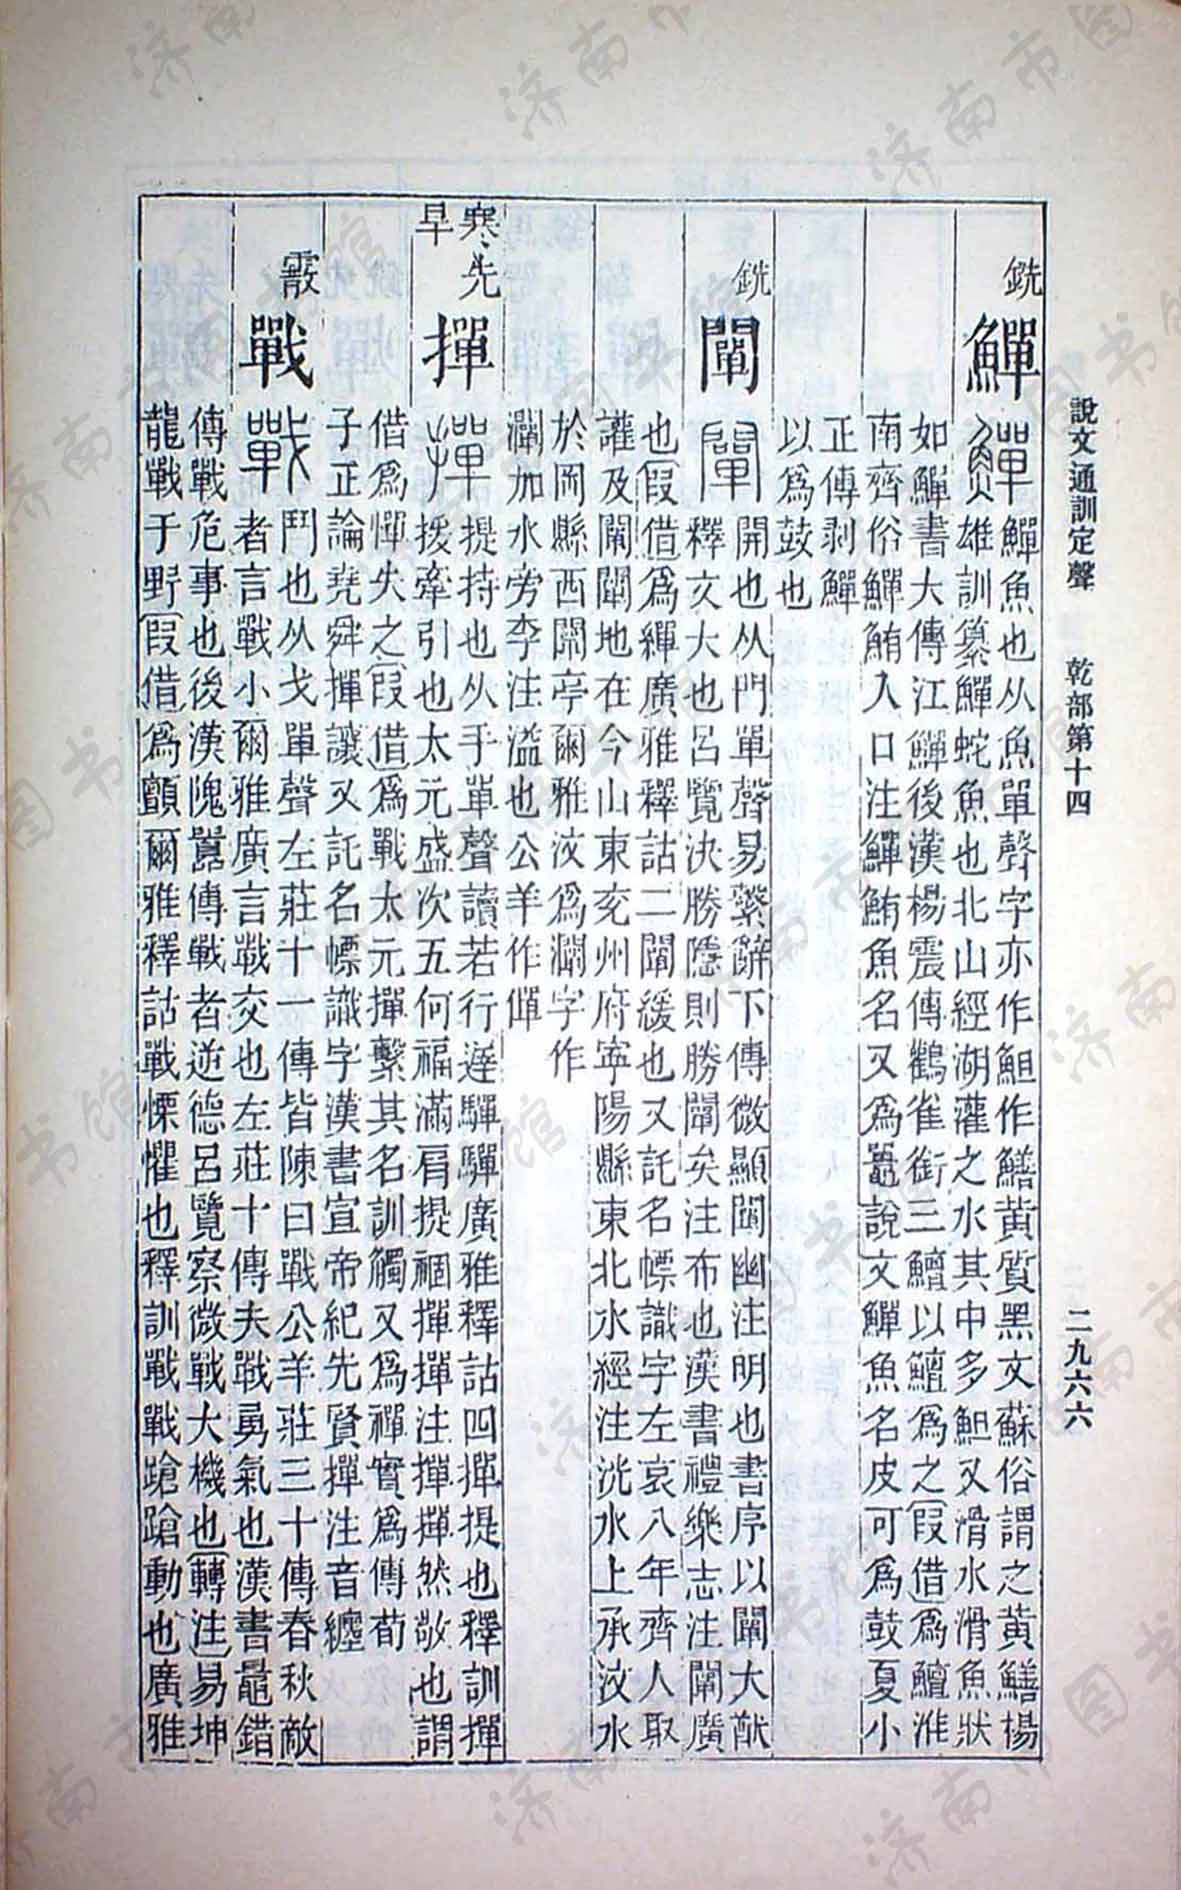 說文通訓定聲 乾部第十四 二九六六
銑
鱓
鱓魚也从魚單聲字亦作䱇作鱔黃質黑文蘇俗謂之黃鱔楊
雄訓纂鱓蛇魚也北山經湖灌之水其中多䱇又滑水滑魚狀
如鱓書大傳江鱓後漢楊震傳鸛雀銜三鱣以鱣爲之假借爲鱣淮
南齊俗鱓鮪入口注鱓鮪魚名又爲鼉說文鱓魚名皮可爲鼓夏小
正傳剥鱓
以爲鼓也
銑
闡
開也从門單聲易繫辭下傳微顯闡幽注明也書序以闡大猷
釋文大也呂覽決勝隱則勝闡矣注布也漢書禮樂志注闡廣
也假借爲繟廣雅釋詁二闡緩也又託名幖識字左哀八年齊人取
讙及闡闡地在今山東兖州府寧陽縣東北水經注洸水上承汶水
於岡縣西闡亭爾雅汶爲灛字作
灛加水旁李注溢也公羊作僤
寒先
旱
撣
提持也从手單聲讀若行遲驒驒廣雅釋詁四撣提也釋訓撣
撣援牽引也太元盛次五何福滿肩提禍撣撣注撣撣然敬也謂
借爲憚失之假借爲戰太元撣繫其名訓觸又爲禪實爲傳荀
子正論堯舜撣讓又託名幖識字漢書宣帝紀先賢撣注音纏
霰
戰
鬥也从戈單聲左莊十一傳皆陳曰戰公羊莊三十傳春秋敵
者言戰小爾雅廣言戰交也左莊十傳夫戰勇氣也漢書鼂錯
傳戰危事也後漢隗囂傳戰者逆德呂覽察微戰大機也轉注易坤
龍戰于野假借爲顫爾雅釋詁戰慄懼也釋訓戰戰蹌蹌動也廣雅